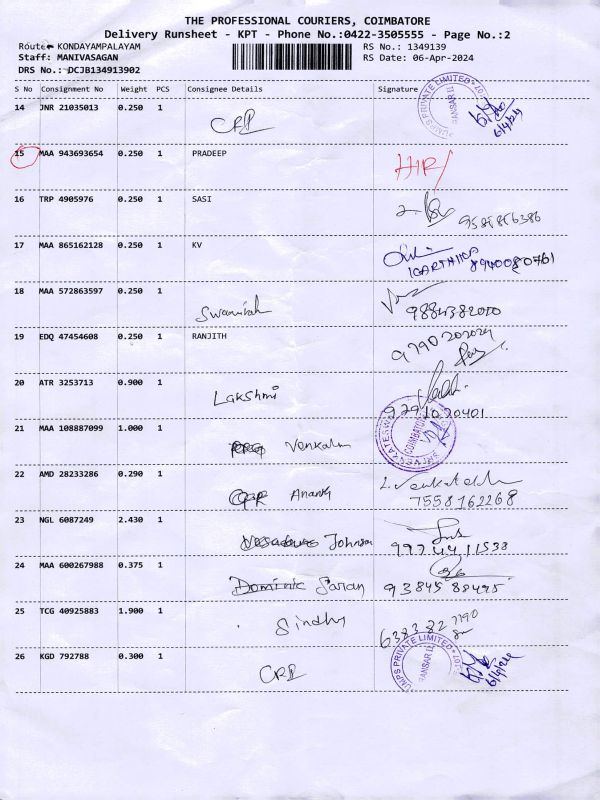 THE PROFESSIONAL COURIERS, COIMBATORE
Delivery Runsheet - KPT - Phone No.:0422-3505555 - Page No.:2
Route: KONDAYAMPALAYAM RS No.: 1349139
Staff: MANIVASAGAN RS Date: 06-Apr-2024
DRS No.: DCJB134913902
S No Consignment No Weight PCS Consignee Details Signature
14 JNR 21035013 0.250 1
UMPS PRIVATE LIMITED
6/4/24
CRI
15 MAA 943693654 0.250 1 PRADEEP
16 TRP 4905976 0.250 1 SASI
17 MAA 865162128 0.250 1 KV
KARTHICK 8940080761
18 MAA 572863597 0.250 1
9884382010
19 EDQ 47454608 0.250 1 RANJITH
9790202029
20 ATR 3253713 0.900 1
Lakshmi
9791020401
21 MAA 108887099 1.000 1
COIMBATORE
22 AMD 28233286 0.290 1
Ananth
7558162268
23 NGL 6087249 2.430 1
Johnson
24 MAA 600267988 0.375 1
Dominic
93845 88495
25 TCG 40925883 1.900 1
Sindhu
638382 7790
26 KGD 792788 0.300 1
UMPS PRIVATE LIMITED
6/4/24
CRI